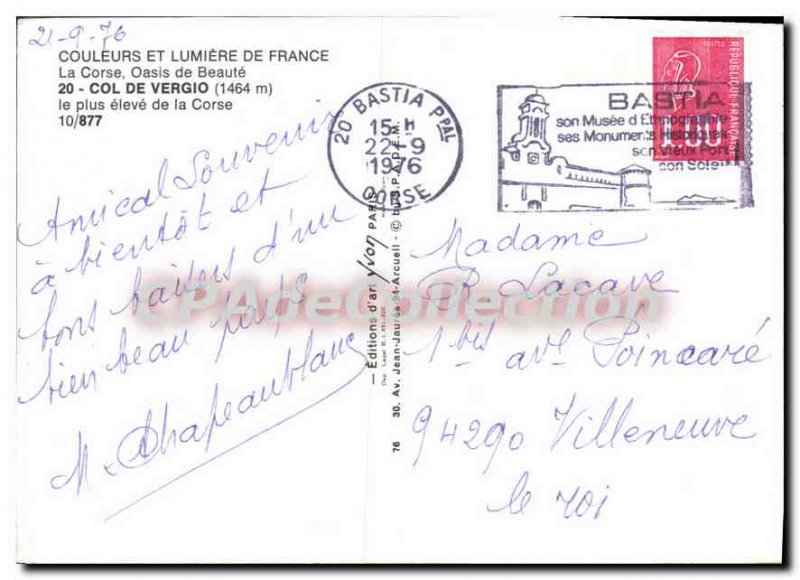 21-9-76
COULEURS ET LUMIÈRE DE FRANCE
La Corse, Oasis de Beauté
20 - COL DE VERGIO (1464 m)
le plus élevé de la Corse
10/877
Amical Souvenir
à bientôt et
bons baisers d'un
bien beau pays
M. Chapeaublanc
20 BASTIA PPAL
15 H
22-9
1976
CORSE
BASTIA
son Musée d'Ethnographie
ses Monuments Historiques
son Vieux Port
son Soleil
POSTES
RÉPUBLIQUE FRANÇAISE
1.00
Madame
R Lacave
1 bis ave Poincaré
94290 Villeneuve
le roi
— Éditions d'art yvon PARIS — © by S.P.A.D.E.M.
76 30, Av. Jean-Jaurès 94-Arcueil
CPAdeCollection